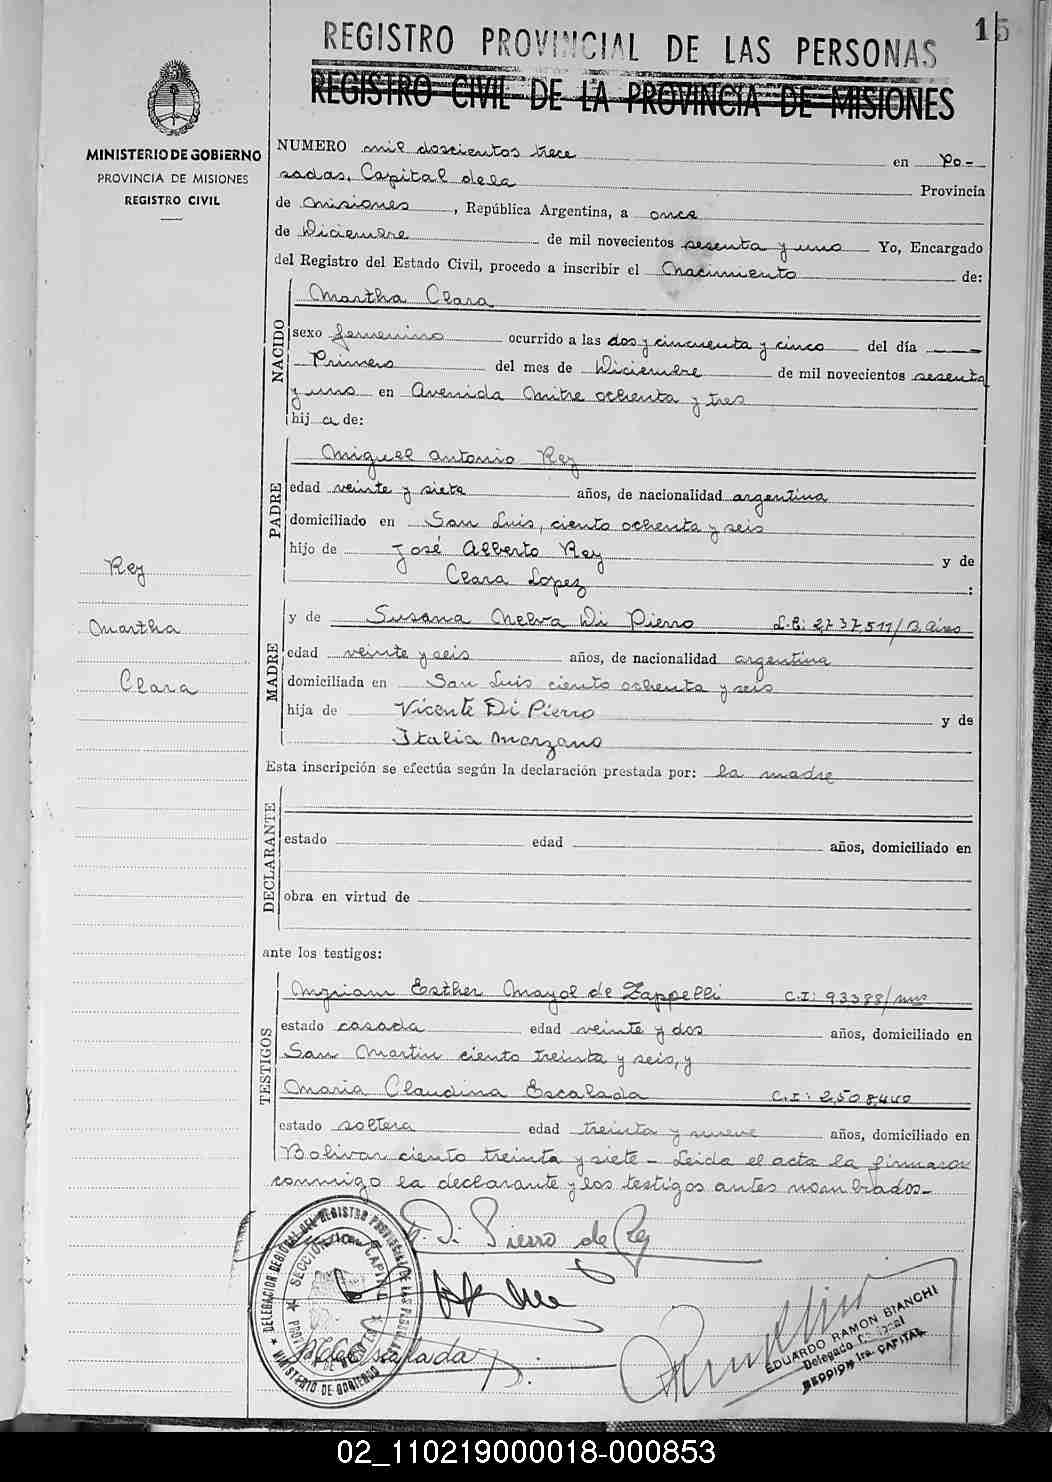 15
REGISTRO PROVINCIAL DE LAS PERSONAS
REGISTRO CIVIL DE LA PROVINCIA DE MISIONES
MINISTERIO DE GOBIERNO
PROVINCIA DE MISIONES
REGISTRO CIVIL
NUMERO mil doscientos trece en Po-
sadas, Capital de la Provincia
de Misiones, República Argentina, a once
de Diciembre de mil novecientos sesenta y uno Yo, Encargado
del Registro del Estado Civil, procedo a inscribir el Nacimiento de:
NACIDO
Martha Clara
sexo femenino ocurrido a las dos y cincuenta y cinco del día
Primero del mes de Diciembre de mil novecientos sesenta
y uno en Avenida Mitre ochenta y tres
hij a de:
PADRE
Miguel Antonio Rey
edad veinte y siete años, de nacionalidad argentina
domiciliado en San Luis, ciento ochenta y seis
hijo de José Alberto Rey y de
Clara Lopez :
Rey
Martha
Clara
MADRE
y de Susana Nelva Di Pierro L.C: 2,737,511/B.Aires
edad veinte y seis años, de nacionalidad argentina
domiciliada en San Luis ciento ochenta y seis
hija de Vicente Di Pierro y de
Italia Marzano
Esta inscripción se efectúa según la declaración prestada por: la madre
DECLARANTE
estado edad años, domiciliado en
obra en virtud de
ante los testigos:
TESTIGOS
Myriam Esther Mayol de Zappelli C.I: 93388/mns
estado casada edad veinte y dos años, domiciliado en
San Martin ciento treinta y seis, y
Maria Claudina Escalada C.I: 2,508,440
estado soltera edad treinta y nueve años, domiciliado en
Bolivar ciento treinta y siete - Leida el acta la firmaron
conmigo la declarante y los testigos antes nombrados-
Di Pierro de Rey
DELEGACION REGIONAL DEL REGISTRO PROVINCIAL DE LAS PERSONAS
SECCION 1ra. CAPITAL
PROVINCIA DE MISIONES
MINISTERIO DE GOBIERNO
Escalada
EDUARDO RAMON BIANCHI
Delegado Regional
SECCION 1ra. CAPITAL
02_110219000018-000853